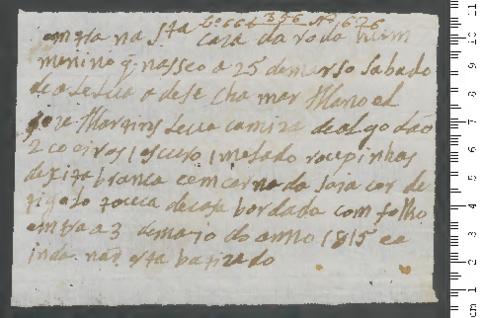 Lo 664 356 No 1626
emtra na Sta Caza da roda hum
menino q. nasseo a 25 demarso Sabado
de a Leluia e adese cha mar Manoel
Joze Martins Leva camiza de al go dão
2 coeiros 1 escuro 1 melado roupinhas
de xita branca com car de
tigolo touca decasa bordada com folho
emtra a 3 demaio do anno 1815 ea
inda não esta batizado